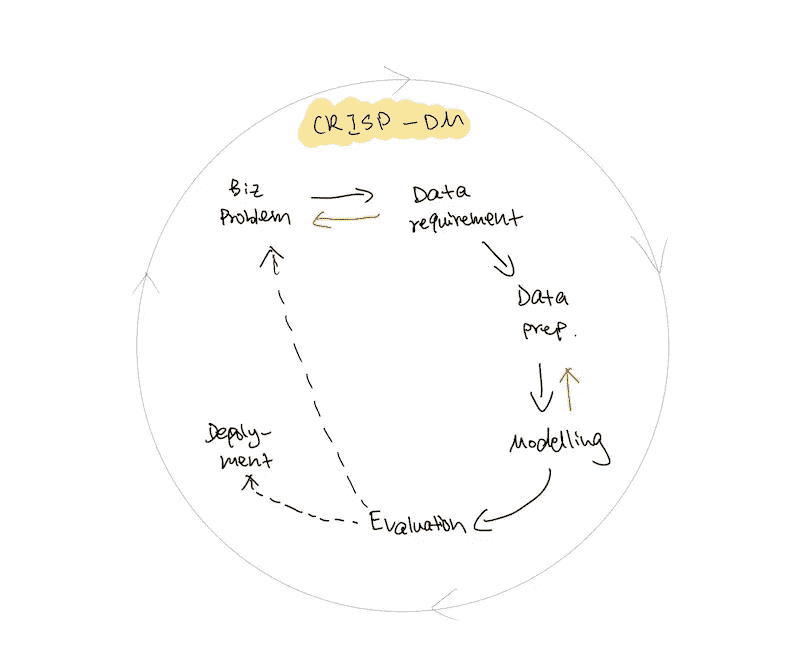 CRISP-DM
Biz
Problem
Data
requirement
Data
prep.
Modelling
Evaluation
Depoly-
ment